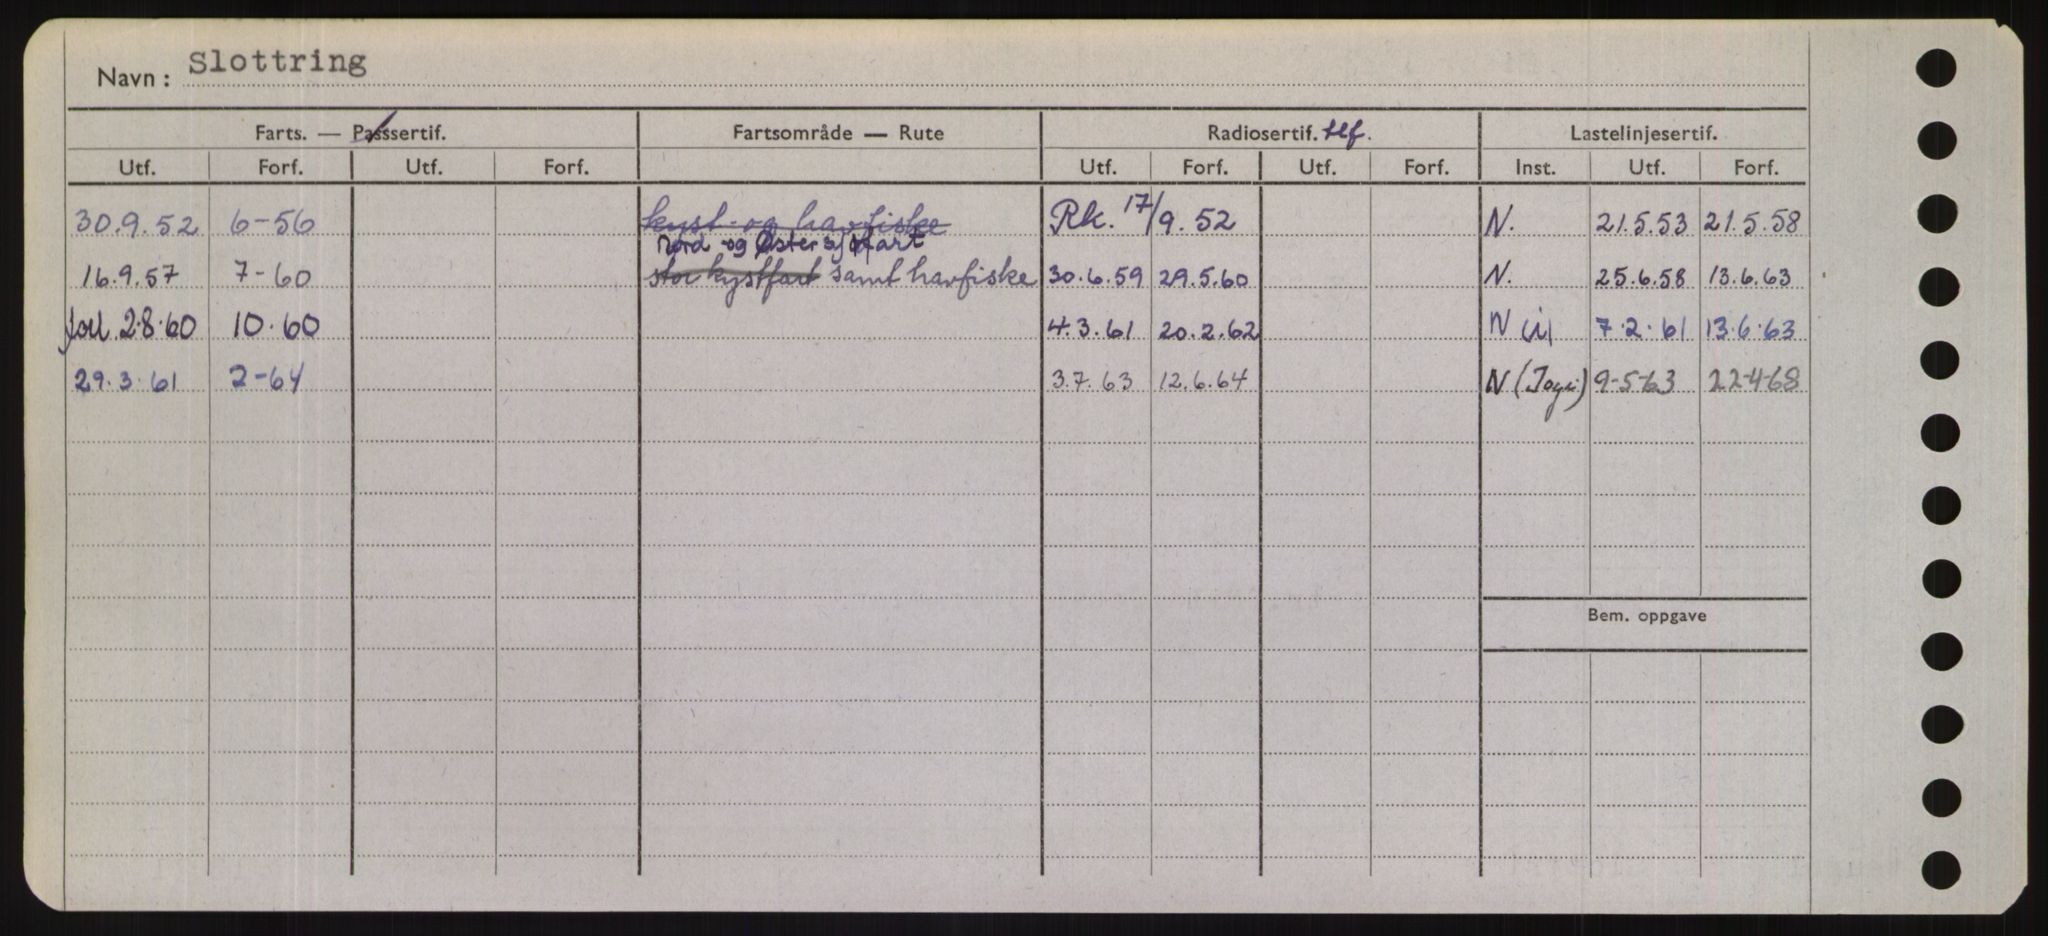 Navn : Slottring
Farts. — Passsertif. Fartsområde — Rute Radiosertif. tlf. Lastelinjesertif.
Utf. Forf. Utf. Forf. Utf. Forf. Utf. Forf. Inst. Utf. Forf.
30.9.52 6-56 kyst- og havfiske Rk. 17/9.52 N. 21.5.53 21.5.58
Nord og Østersjøfart
16.9.57 7-60 stor kystfart samt havfiske 30.6.59 29.5.60 N. 25.6.58 13.6.63
2.8.60 10.60 4.3.61 20.2.62 N 7.2.61 13.6.63
29.3.61 2-64 3.7.63 12.6.64 N 9-5-63 22-4-68
Bem. oppgave